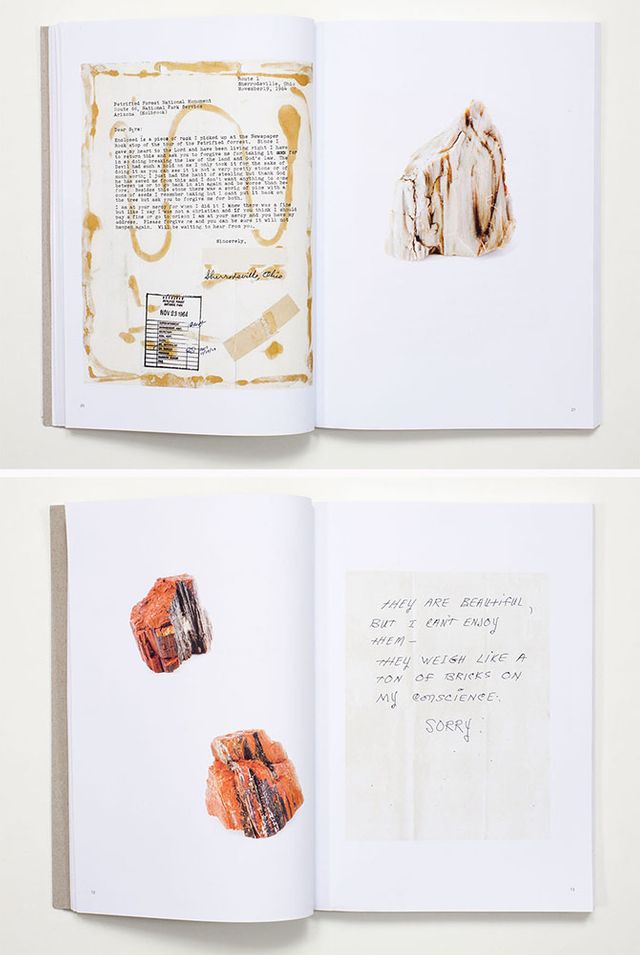 Route 1
Sherrodsville, Ohio
November19, 1964
Petrified Forest National Monument
Route 66, National Park Service
Arizona (Holbrook)
Dear Syrs:
Enclosed is a piece of rock I picked up at the Newspaper
Rock stop of the tour of the Petrified forrest. Since I
gave my heart to the Lord and have been living right I have
to return this and ask you to forgive me for taking it for
in so doing breaking the law of the land and God's law. The
Devil had such a hold on me I only took it for the sake of
doing it as you can see it is not a very pretty stone or of
much worth; I just had the habit of stealing but thank God
he has saved me from this and I don't want anything to come
between us or to go back in sin again and be worse than be-
fore. Besides this stone there was a sprig of pine with a
cone of seeds I remember taking but I cant put it back on
the tree but ask you to forgive me for both.
I am at your mercy for when I did it I knew there was a fine
but like I say I was not a christian and if you think I should
pay a fine or go to prison I am at your mercy and you have my
address. Please forgive me and you can be sure it will not
happen again. Will be waiting to hear from you.
Sincerely,
Sherrodsville, Ohio
NOV 23 1964
20
21
THEY ARE BEAUTIFUL,
BUT I CAN'T ENJOY
THEM—
THEY WEIGH LIKE A
TON OF BRICKS ON
MY CONSCIENCE.
SORRY.
12
13